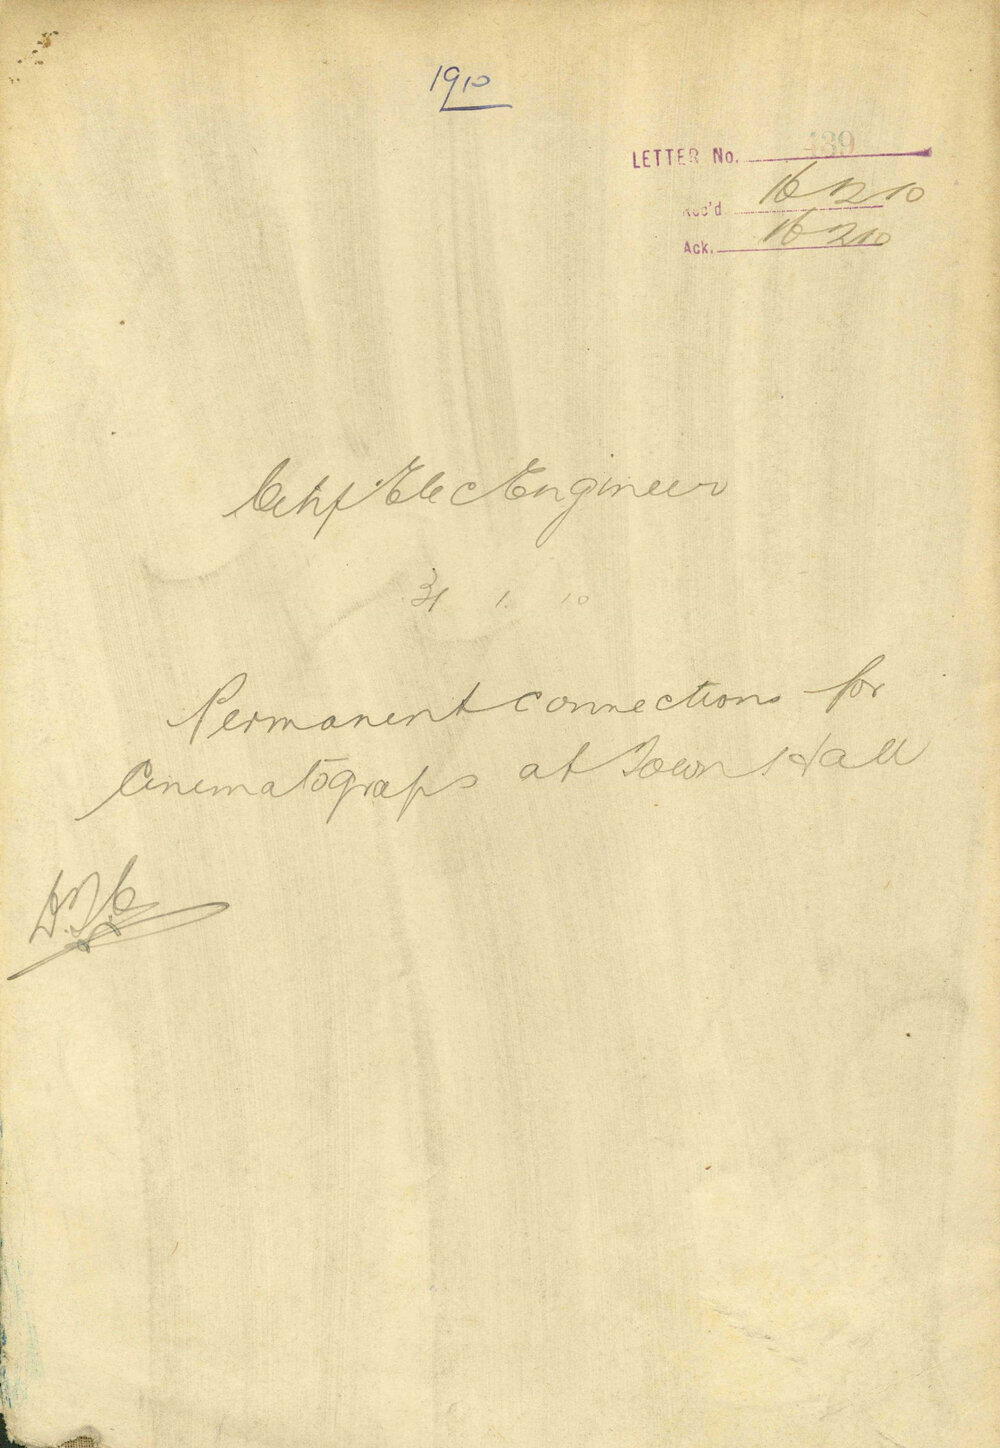 1910
LETTER No. 439
Rec'd 16 2 10
Ack. 16 2 10
Chf Elec Engineer
31 1. 10
Permanent connections for
Cinematographs at Town Hall